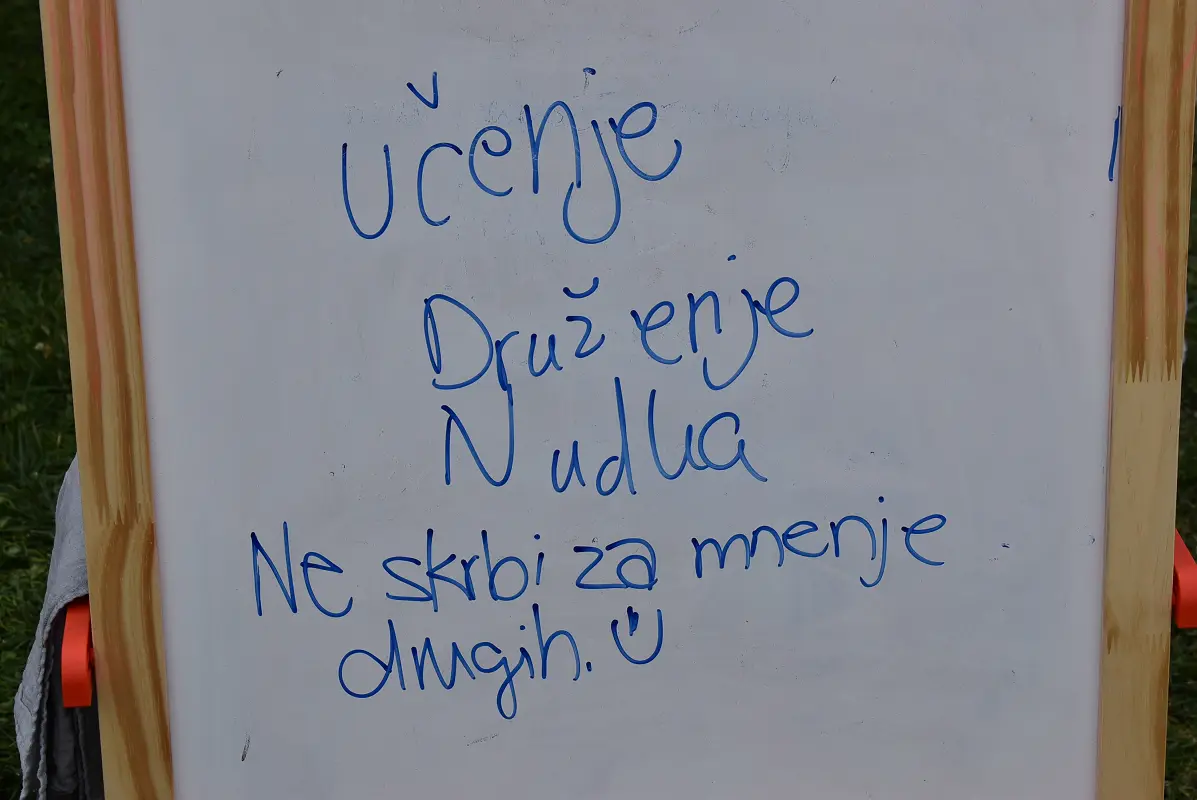 Učenje
Druženje
Nudla
Ne skrbi za mnenje
drugih. :)